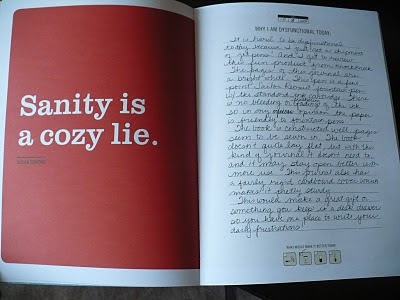 Sanity is
a cozy lie.
SUSAN SONTAG
WHY I AM DYSFUNCTIONAL TODAY:
It is hard to be dysfunctional
today because I just got a shipment
of gel pens! And I got to review
this fun product from Knock Knock.
The pages of this journal are
a bright white. This pen is a fine
point Taylor fountain pen
w/ the standard cartridge. There
is no bleeding or of the ink
so in my opinion the paper
is friendly to fountain pens.
The book is constructed well, pages
seem to be sewn in. The book
doesn't quite lay flat, but with this
kind of journal it doesn't need to,
and it may stay open better with
more use. The journal also has
a fairly rigid cardboard cover which
makes it pretty sturdy.
This would make a great gift or
something you keep in a desk drawer
so you have a place to write your
daily frustrations!
WHAT WOULD MAKE IT BETTER TODAY: